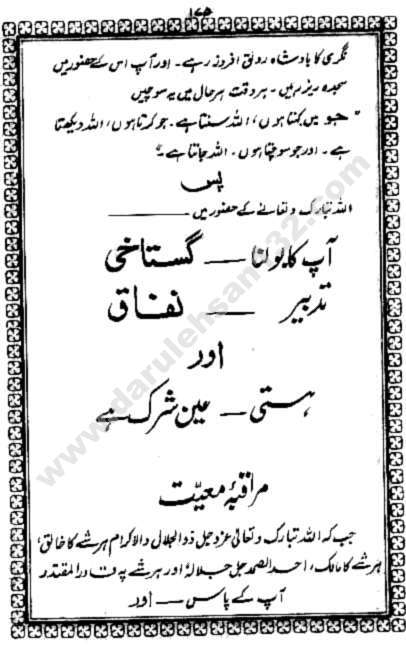 ۱۶۵
نگری کا بادشاہ رونق افروز رہے۔ اور آپ اس کے حضور میں
سجدہ ریز رہیں۔ ہر وقت ہر حال میں یہ سوچیں
"جو میں کہتا ہوں، اللہ سنتا ہے۔ جو کرتا ہوں، اللہ دیکھتا
ہے۔ اور جو سوچتا ہوں۔ اللہ جانتا ہے۔"
پس
اللہ تبارک و تعالےٰ کے حضور میں۔
آپ کا بولنا — گستاخی
تدبیر — نفاق
اور
ہستی — عین شرک ہے
مراقبۂ معیّت
جب کہ اللہ تبارک و تعالیٰ عزوجل ذوالجلال والاکرام ہر شے کا خالق،
ہر شے کا مالک، احد الصمد جل جلالہٗ اور ہر شے پہ قادر المقتدر
آپ کے پاس — اور
www.darulehsan132.com